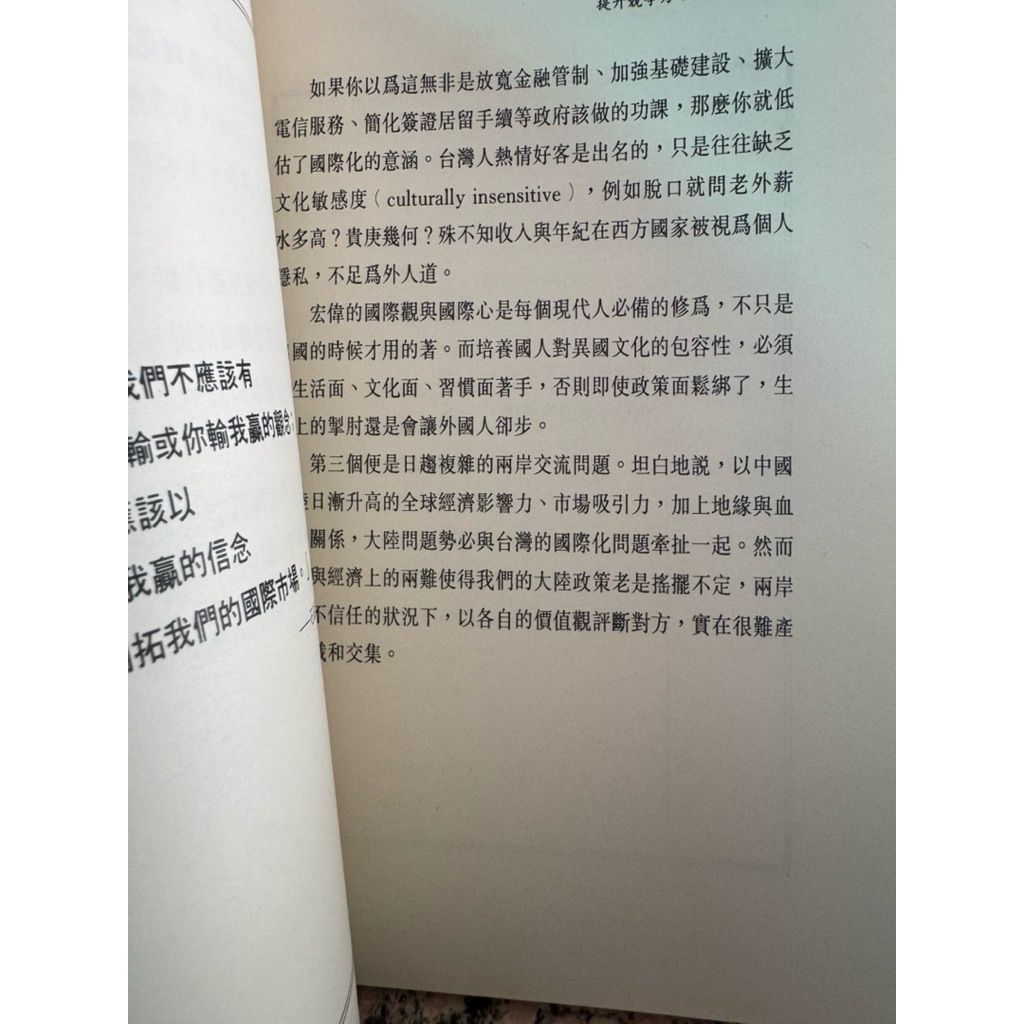 我們不應該有
輸或你輸我贏的觀念
應該以
我贏的信念
拓我們的國際市場。
提升競爭力
如果你以爲這無非是放寬金融管制、加強基礎建設、擴大
電信服務、簡化簽證居留手續等政府該做的功課，那麼你就低
估了國際化的意涵。台灣人熱情好客是出名的，只是往往缺乏
文化敏感度（culturally insensitive），例如脫口就問老外薪
水多高？貴庚幾何？殊不知收入與年紀在西方國家被視爲個人
隱私，不足爲外人道。
宏偉的國際觀與國際心是每個現代人必備的修爲，不只是
國的時候才用的著。而培養國人對異國文化的包容性，必須
生活面、文化面、習慣面著手，否則即使政策面鬆綁了，生
上的掣肘還是會讓外國人卻步。
第三個便是日趨複雜的兩岸交流問題。坦白地説，以中國
日漸升高的全球經濟影響力、市場吸引力，加上地緣與血
關係，大陸問題勢必與台灣的國際化問題牽扯一起。然而
與經濟上的兩難使得我們的大陸政策老是搖擺不定，兩岸
不信任的狀況下，以各自的價值觀評斷對方，實在很難產
和交集。